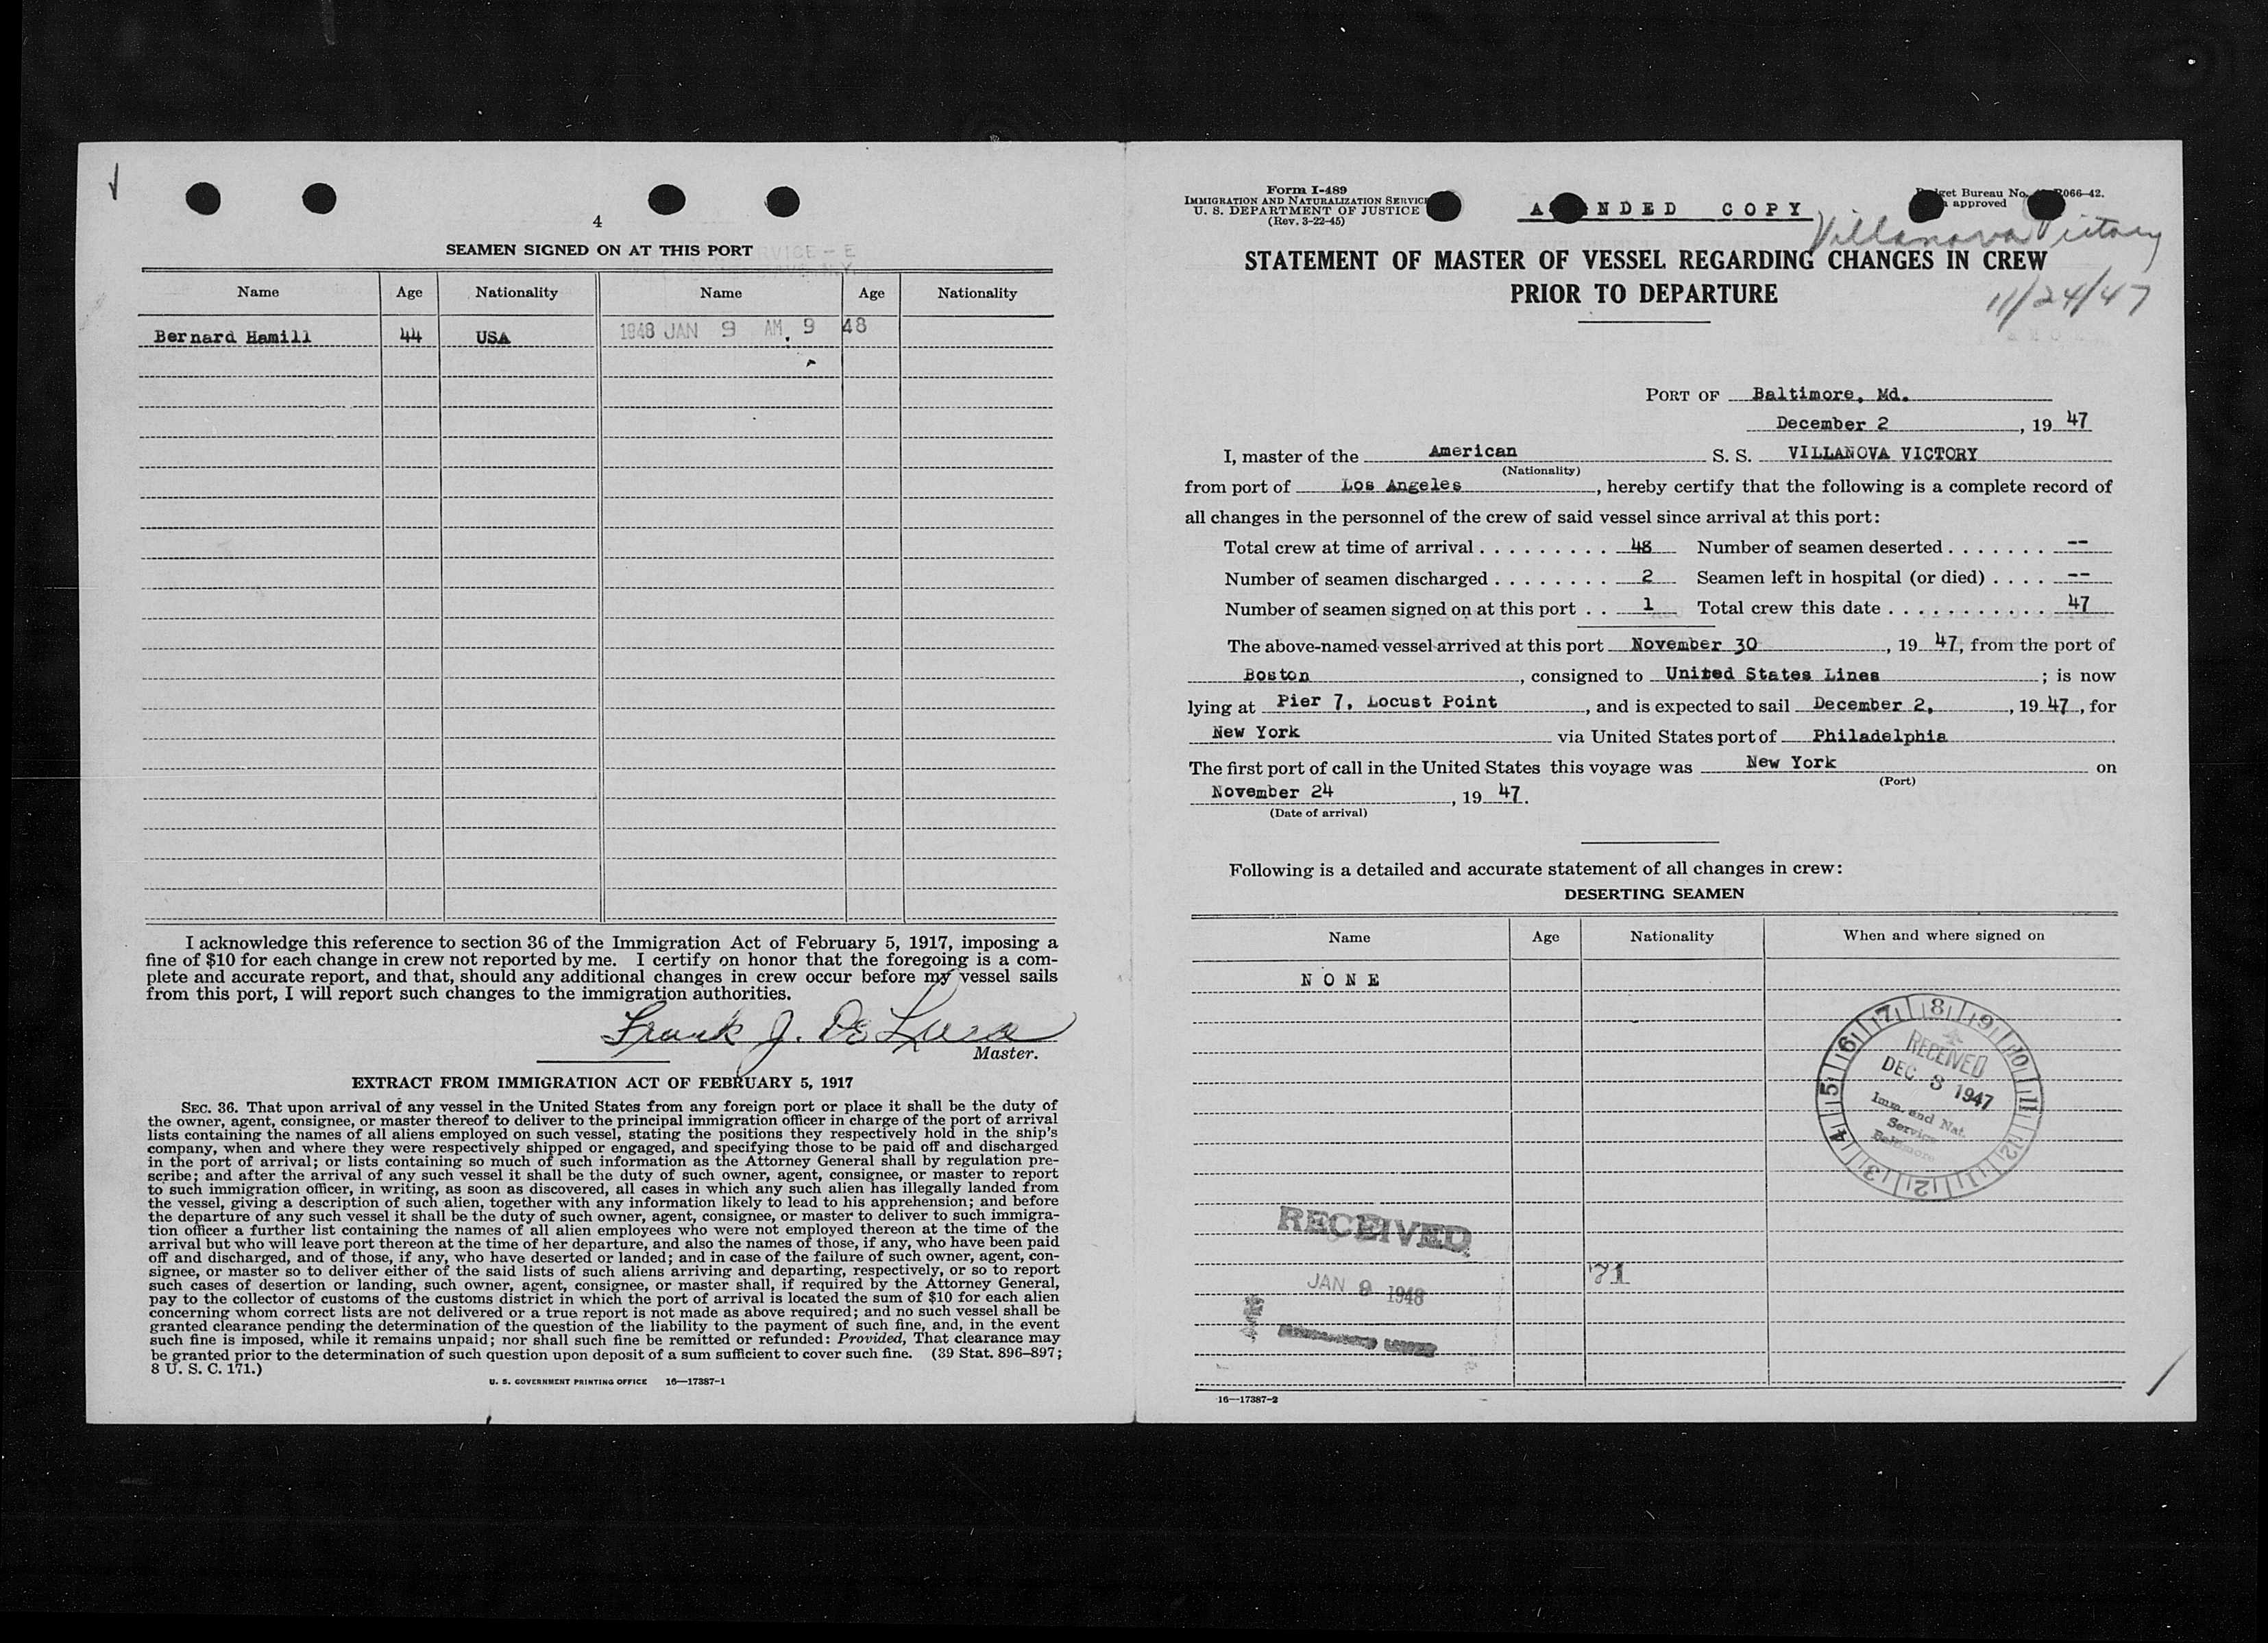 4
SEAMEN SIGNED ON AT THIS PORT
Name Age Nationality Name Age Nationality
Bernard Hamill 44 USA 1948 JAN 9 AM. 9 48
I acknowledge this reference to section 36 of the Immigration Act of February 5, 1917, imposing a
fine of $10 for each change in crew not reported by me. I certify on honor that the foregoing is a com-
plete and accurate report, and that, should any additional changes in crew occur before my vessel sails
from this port, I will report such changes to the immigration authorities.
Frank J. De Luca
Master.
EXTRACT FROM IMMIGRATION ACT OF FEBRUARY 5, 1917
SEC. 36. That upon arrival of any vessel in the United States from any foreign port or place it shall be the duty of
the owner, agent, consignee, or master thereof to deliver to the principal immigration officer in charge of the port of arrival
lists containing the names of all aliens employed on such vessel, stating the positions they respectively hold in the ship's
company, when and where they were respectively shipped or engaged, and specifying those to be paid off and discharged
in the port of arrival; or lists containing so much of such information as the Attorney General shall by regulation pre-
scribe; and after the arrival of any such vessel it shall be the duty of such owner, agent, consignee, or master to report
to such immigration officer, in writing, as soon as discovered, all cases in which any such alien has illegally landed from
the vessel, giving a description of such alien, together with any information likely to lead to his apprehension; and before
the departure of any such vessel it shall be the duty of such owner, agent, consignee, or master to deliver to such immigra-
tion officer a further list containing the names of all alien employees who were not employed thereon at the time of the
arrival but who will leave port thereon at the time of her departure, and also the names of those, if any, who have been paid
off and discharged, and of those, if any, who have deserted or landed; and in case of the failure of such owner, agent, con-
signee, or master so to deliver either of the said lists of such aliens arriving and departing, respectively, or so to report
such cases of desertion or landing, such owner, agent, consignee, or master shall, if required by the Attorney General,
pay to the collector of customs of the customs district in which the port of arrival is located the sum of $10 for each alien
concerning whom correct lists are not delivered or a true report is not made as above required; and no such vessel shall be
granted clearance pending the determination of the question of the liability to the payment of such fine, and, in the event
such fine is imposed, while it remains unpaid; nor shall such fine be remitted or refunded: Provided, That clearance may
be granted prior to the determination of such question upon deposit of a sum sufficient to cover such fine. (39 Stat. 896–897;
8 U. S. C. 171.)
U. S. GOVERNMENT PRINTING OFFICE 16—17387-1
Form I-489
IMMIGRATION AND NATURALIZATION SERVICE
U. S. DEPARTMENT OF JUSTICE
(Rev. 3-22-45)
A NDED COPY
get Bureau No. R066-42.
approved
Villanova Victory
11/24/47
STATEMENT OF MASTER OF VESSEL REGARDING CHANGES IN CREW
PRIOR TO DEPARTURE
PORT OF Baltimore, Md.
December 2, 19 47
I, master of the American S. S. VILLANOVA VICTORY
(Nationality)
from port of Los Angeles, hereby certify that the following is a complete record of
all changes in the personnel of the crew of said vessel since arrival at this port:
Total crew at time of arrival . . . . . . . . . 48 Number of seamen deserted . . . . . . . --
Number of seamen discharged . . . . . . . . 2 Seamen left in hospital (or died) . . . . --
Number of seamen signed on at this port . . 1 Total crew this date . . . . . . . . . . . 47
The above-named vessel arrived at this port November 30, 19 47, from the port of
Boston, consigned to United States Lines; is now
lying at Pier 7, Locust Point, and is expected to sail December 2, , 19 47, for
New York via United States port of Philadelphia
The first port of call in the United States this voyage was New York on
(Port)
November 24, 19 47.
(Date of arrival)
Following is a detailed and accurate statement of all changes in crew:
DESERTING SEAMEN
Name Age Nationality When and where signed on
NONE
7 8 9 10 11 12 1 2 3 4 5 6
RECEIVED
DEC 3 1947
Imm. and Nat.
Service
Baltimore
RECEIVED
JAN 9 1948
71
16—17387-2